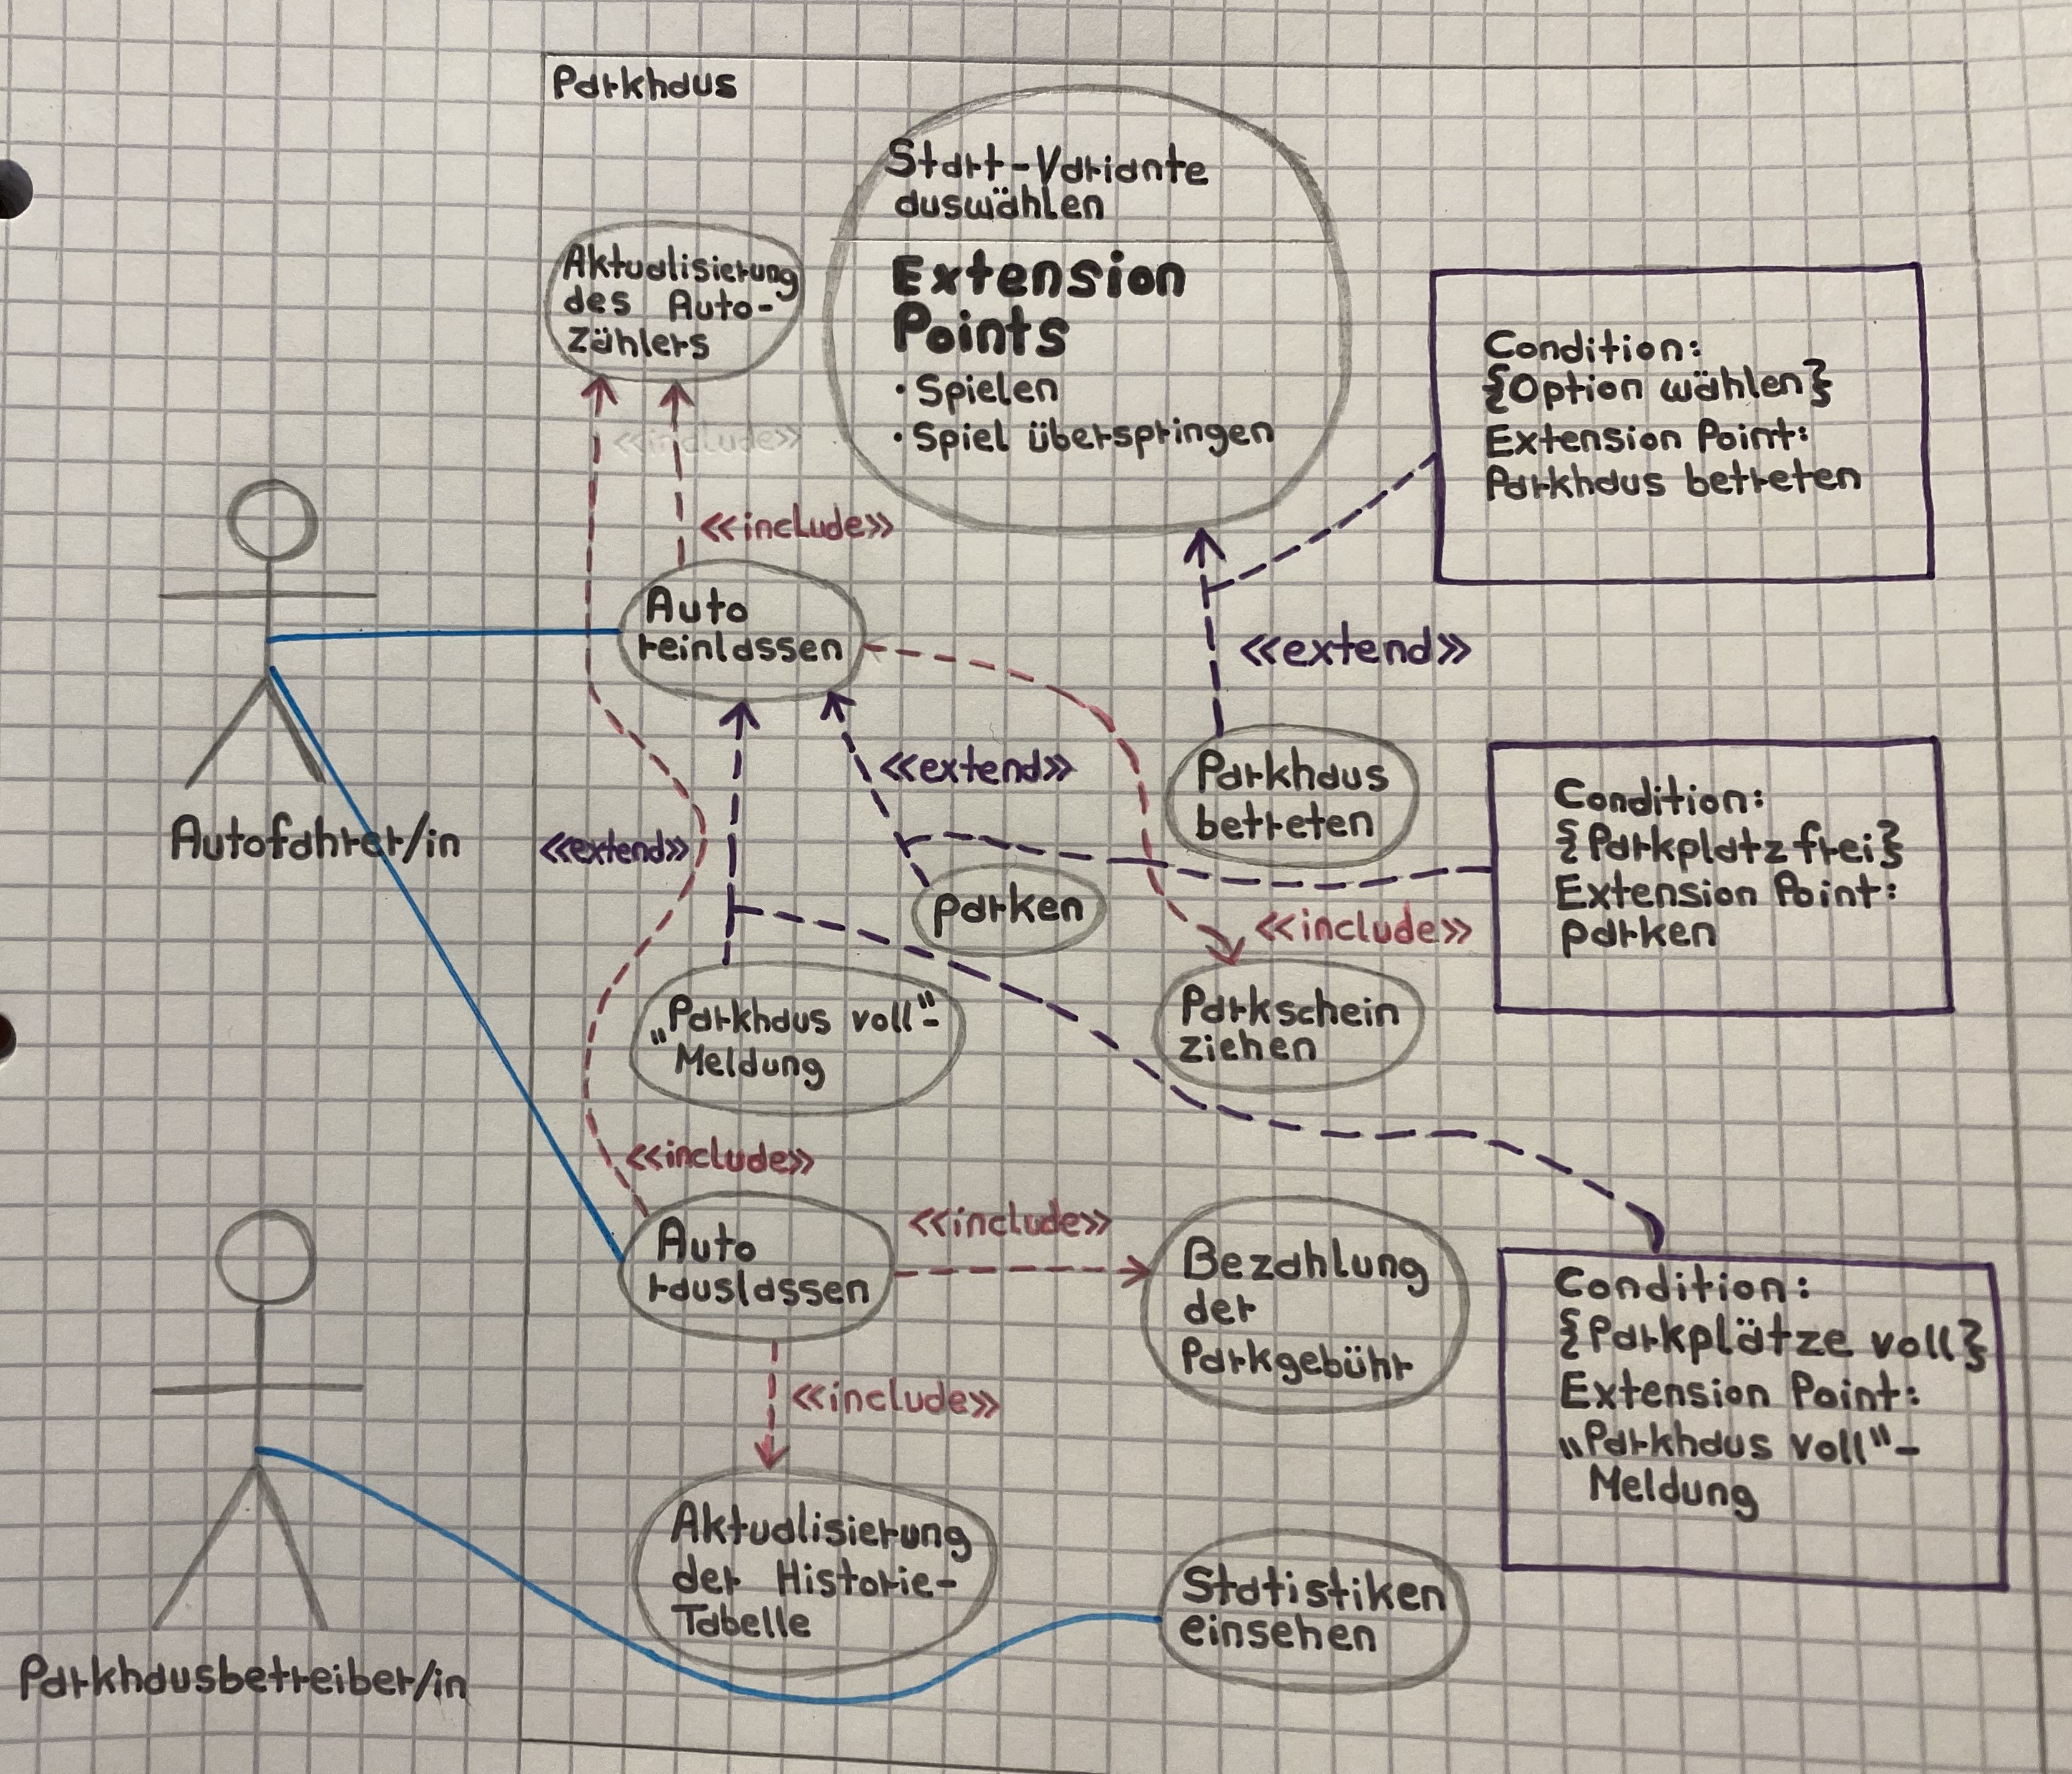 Parkhaus
Start-Variante
auswählen
Extension
Points
• Spielen
• Spiel überspringen
Aktualisierung
des Auto-
zählers
<<include>>
<<include>>
Condition:
{Option wählen}
Extension Point:
Parkhaus betreten
Auto
reinlassen
<<extend>>
<<extend>>
Parkhaus
betreten
Autofahrer/in
<<extend>>
Condition:
{Parkplatz frei}
Extension Point:
parken
parken
<<include>>
„Parkhaus voll"-
Meldung
Parkschein
ziehen
<<include>>
<<include>>
Auto
rauslassen
Bezahlung
der
Parkgebühr
Condition:
{Parkplätze voll}
Extension Point:
"Parkhaus voll"-
Meldung
<<include>>
Aktualisierung
der Historie-
Tabelle
Statistiken
einsehen
Parkhausbetreiber/in